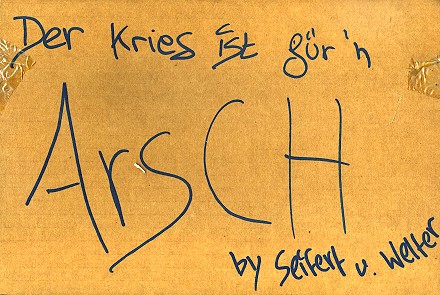 Der Kries ist gür'n
ARSCH
by Seifert u. Welter